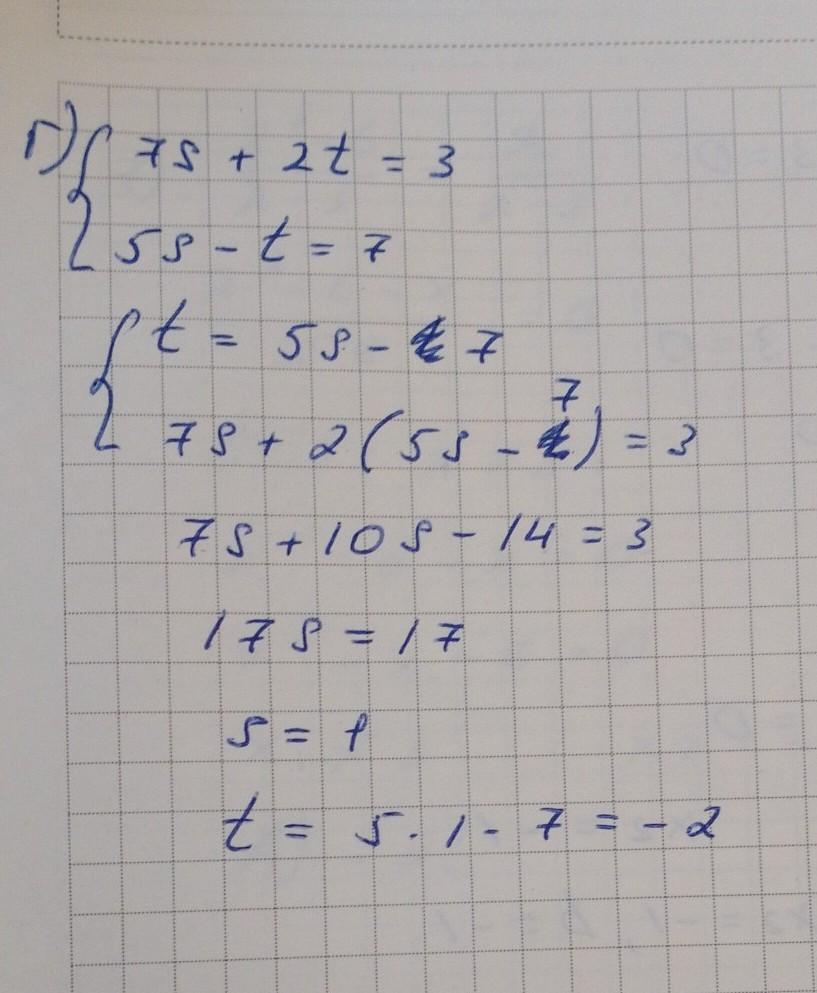 г) 7s + 2t = 3
5s - t = 7
t = 5s - 7
7s + 2(5s - 7) = 3
7s + 10s - 14 = 3
17s = 17
s = 1
t = 5 · 1 - 7 = -2